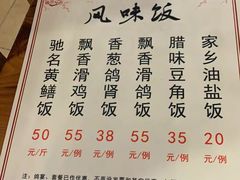 风味饭
驰名黄鳝饭
飘香滑鸡饭
香葱鸽肾饭
飘香滑鸽饭
腊味豆角饭
家乡油盐饭
50 55 38 55 35 20
元/斤 元/例 元/例 元/例 元/例 元/例